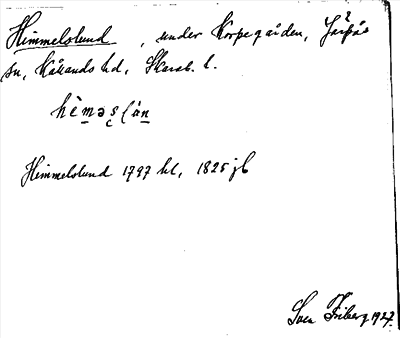 Himmelslund, under Korpegården, Järpås
sn, Kållands hd, Skarab. l.
hèməs
Himmelslund 1797 hl, 1825 jb
Sven Friberg 1927.